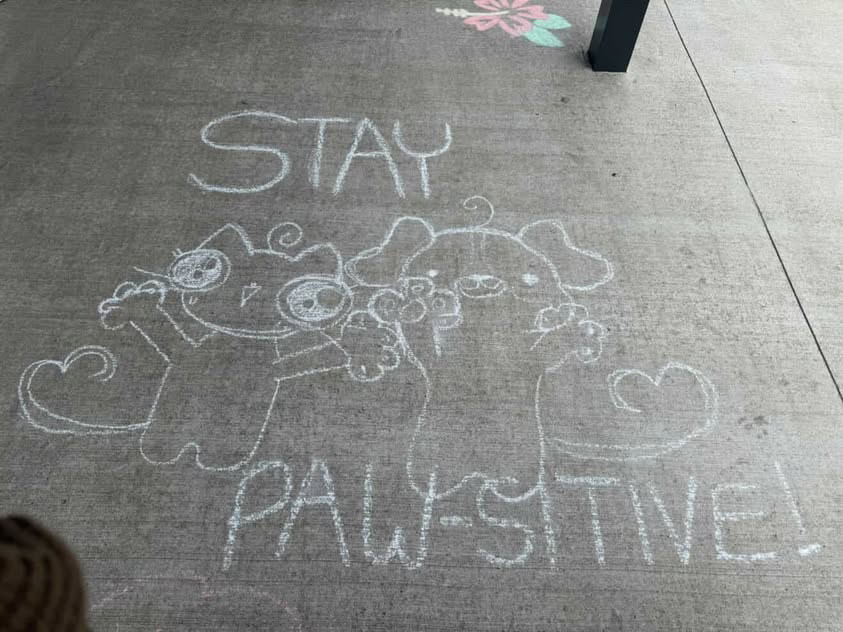 STAY
PAW-SITIVE!